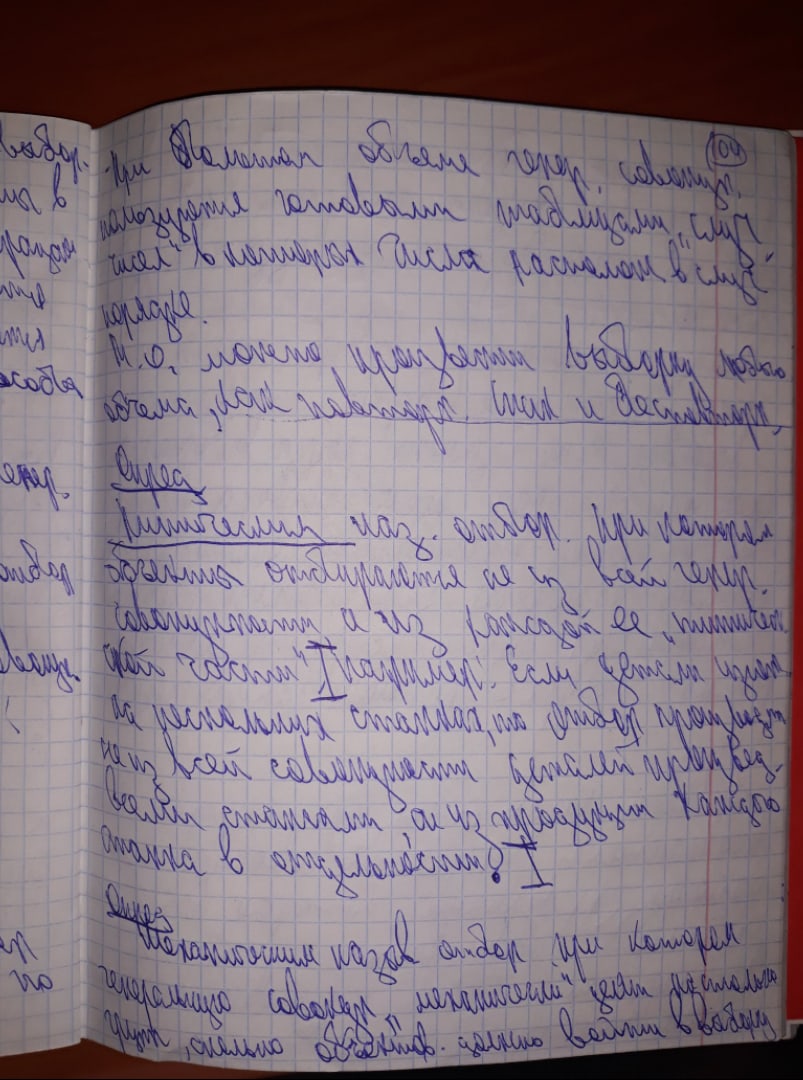 104
При большом объеме генер. совокуп.
пользуются готовыми таблицами "случ.
чисел" в которых числа располож в случ
порядке.
Т.о. можно произвести выборку любого
объема, как повторн. так и бесповторн.
Опред
Типическим наз. отбор. при котором
объекты отбираются не из всей генер.
совокупности, а из каждой ее "типичес
кой части" I например: Если детали изгот
на нескольких станках, то отбор производ
не из всей совокупности деталей произвед.
всеми станками, а из продукции каждого
станка в отдельности. I
Опред
Механическим назыв отбор при котором
генеральную совокуп "механически" делят на столько
групп, сколько объектов. должно войти в выборку
выбор.
в
особы
генер.
отбор
по